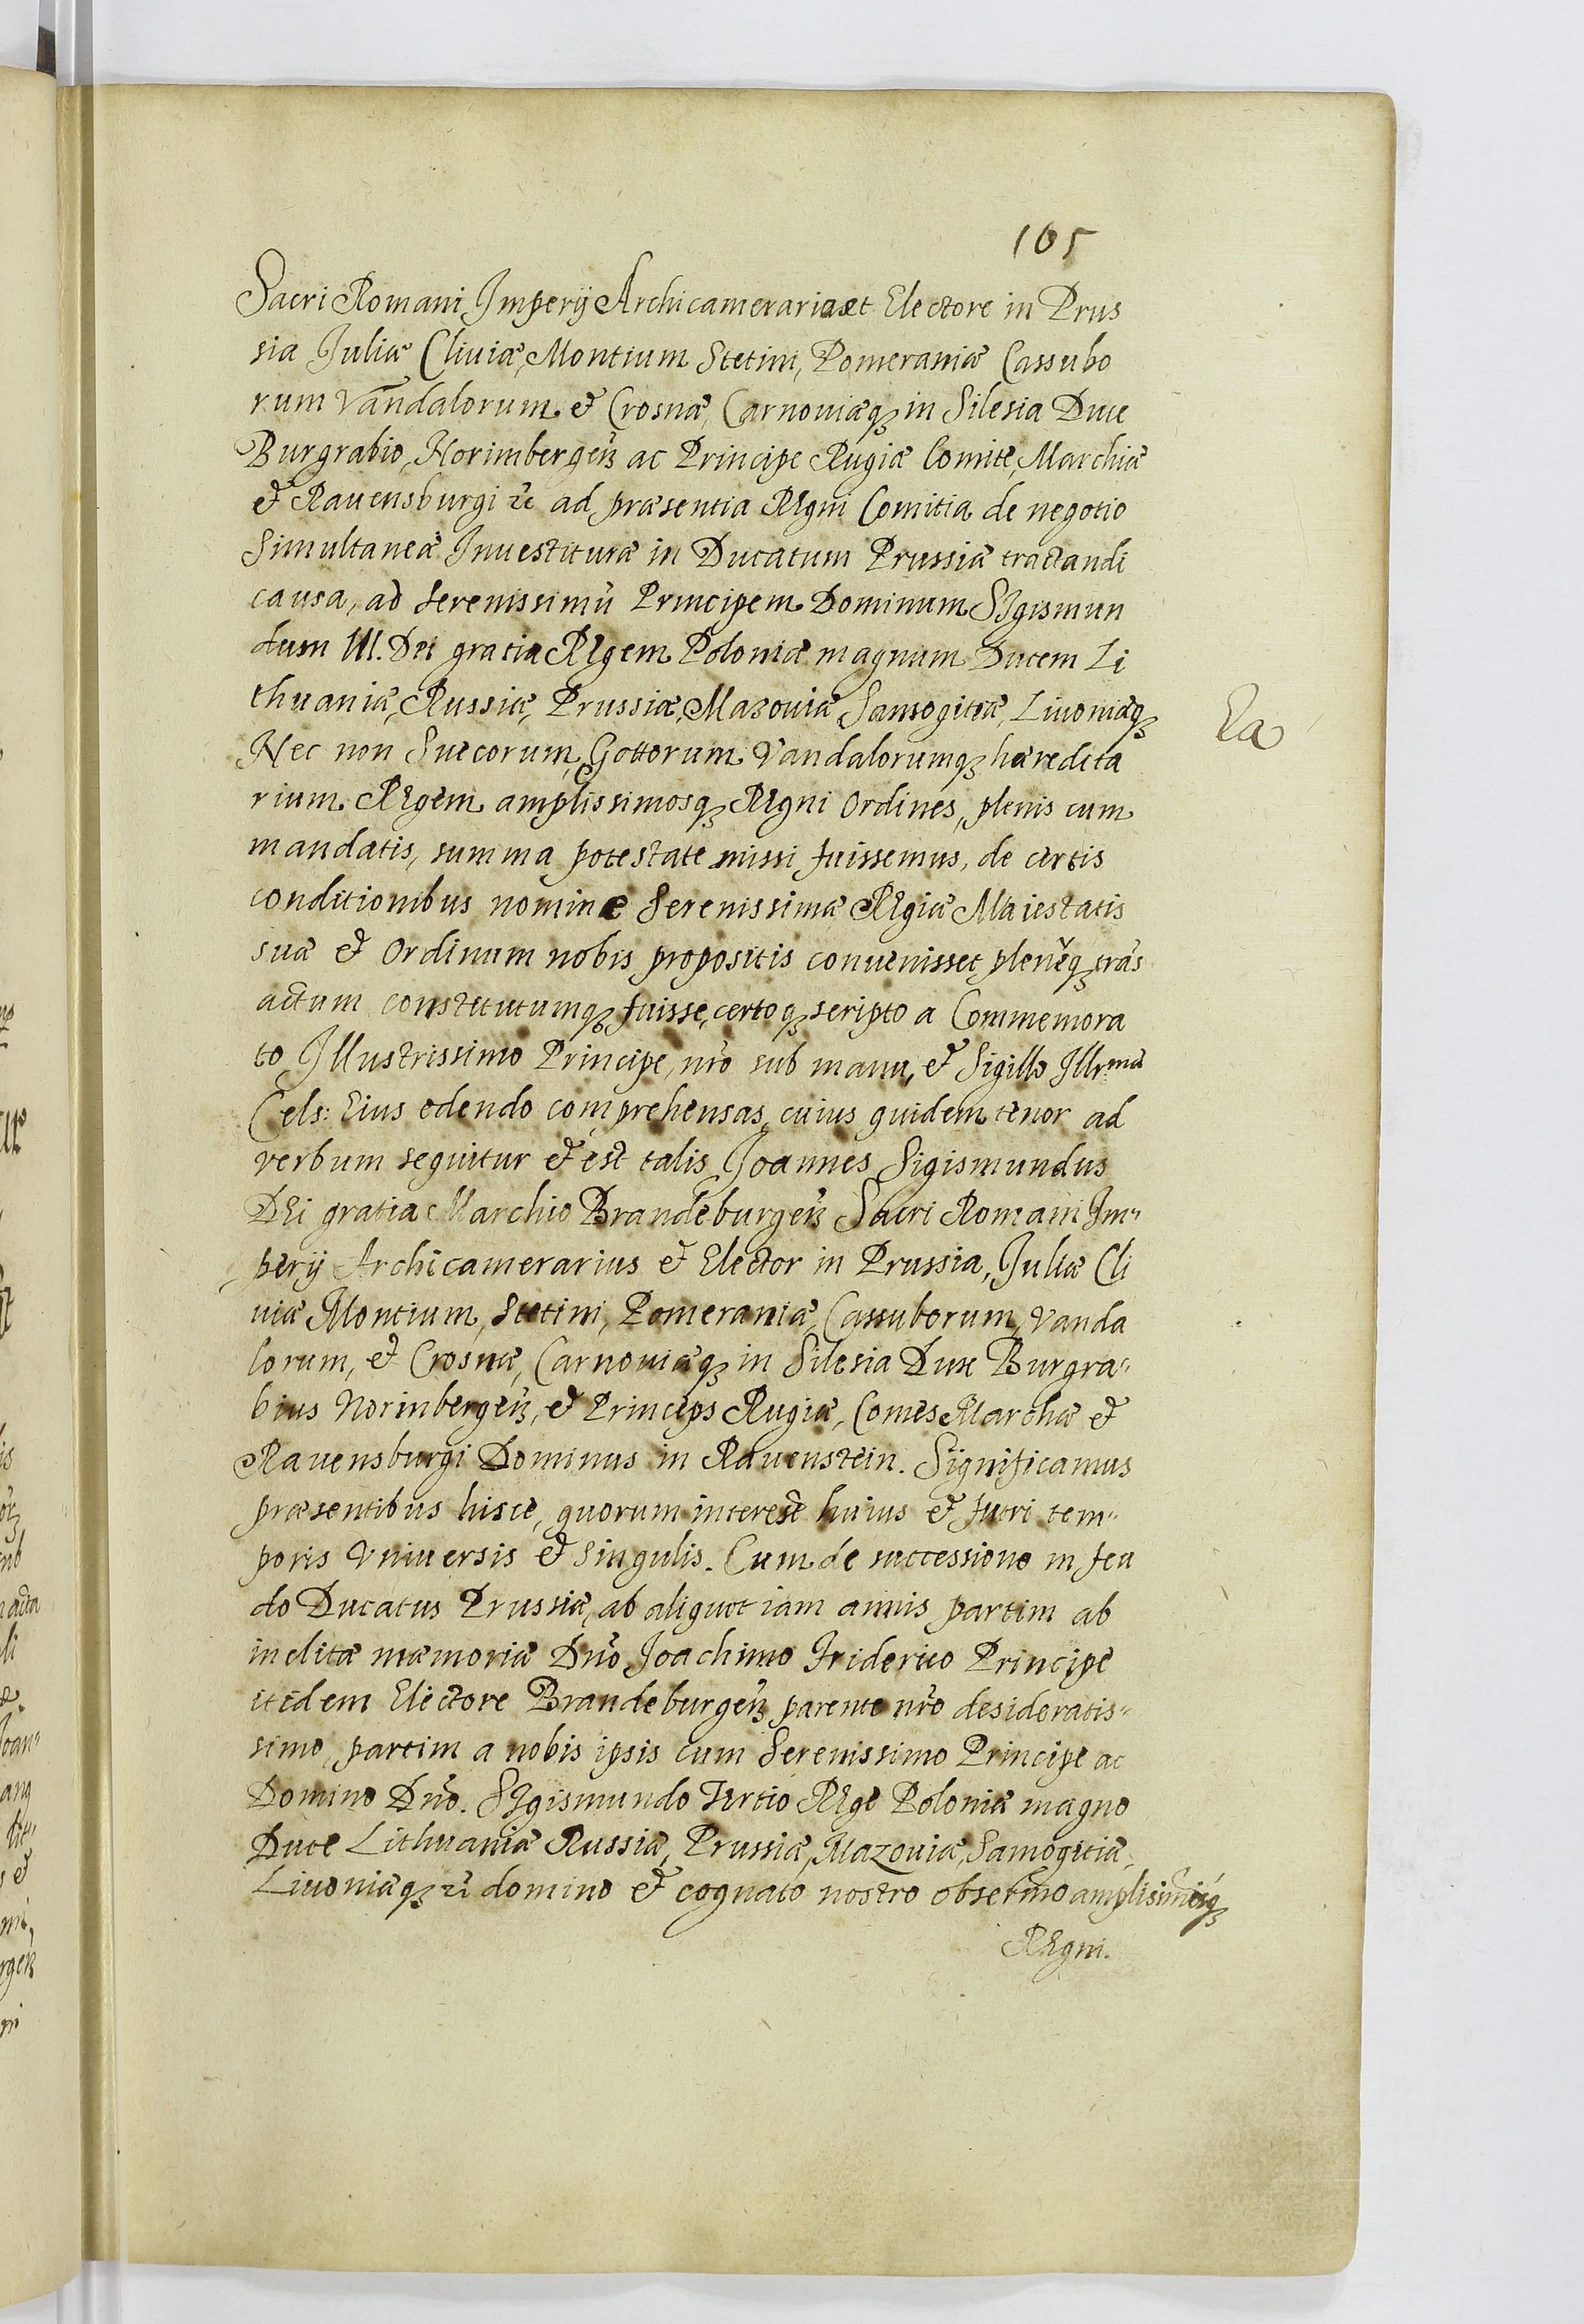 105
Sacri Romani Imperij Archicamerario et Electore in Prus
sia Juliæ Cliuiæ, Montium Stetini, Pomeraniæ Cassubo
rum Vandalorum et Crosnæ, Carnouiæq₃ in Silesia Duce
Burgrabio Norimbergeñ ac Principe Rugiæ Comite, Marchiæ
et Rauensburgi ꝛc ad præsentia Regni Comitia de negotio
Simultaneæ Inuestituræ in Ducatum Prussiæ tractandi
causa, ad Serenissimũ Principem Dominum Sigismun
dum III. Dei gratia Regem Poloniæ magnum Ducem Li
thuaniæ, Russiæ, Prussiæ, Mazouiæ Samogitiæ, Liuoniæq₃
Ea
Nec non Suecorum, Gottorum Vandalorumq₃ hæredita
rium Regem amplissimosq₃ Regni Ordines, plenis cum
mandatis, summa potestate missi fuissemus, de certis
conditionibus nomine Serenissimæ Regiæ Maiestatis
suæ et Ordinum nobis propositis conuenisset pleneq₃ trãs
actum constitutumq₃ fuisse, certoq₃ scripto a Commemora
to Illustrissimo Principe, nr̃o sub manu, et Sigillo Illr̃mæ
Cels: Eius edendo comprehensas, cuius quidem tenor ad
verbum sequitur et est talis Joannes Sigismundus
Dei gratia Marchio Brandeburgeñ Sacri Romani Im„
perij Archicamerarius et Elector in Prussia, Juliæ Cli
uiæ Montium, Stetini, Pomeraniæ, Cassuborum, Vanda
lorum, et Crosnæ, Carnouiæq₃ in Silesia Dux Burgra„
bius Norinbergeñ, et Princeps Rugiæ, Comes Marchæ et
Rauensburgi Dominus in Rauenstein. Significamus
præsentibus hisce, quorum interest huius et futri tem„
poris Vniuersis et Singulis. Cum de successione in feu
do Ducatus Prussiæ, ab aliquot iam annis partim ab
inclitæ mæmoriæ Dn̄o Joachimo Friderico Principe
itidem Electore Brandeburgeñ parente nr̃o desideratis„
simo, partim a nobis ipsis cum Serenissimo Principe ac
Domino Dn̄o. Sigismundo Tertio Rege Poloniæ magno
Duce Lithuaniæ Russiæ, Prussiæ, Mazouiæ, Samogitiæ,
Liuoniæq₃ ꝛc domino et cognato nostro obser̃mo amplisimisq₃
Regni.